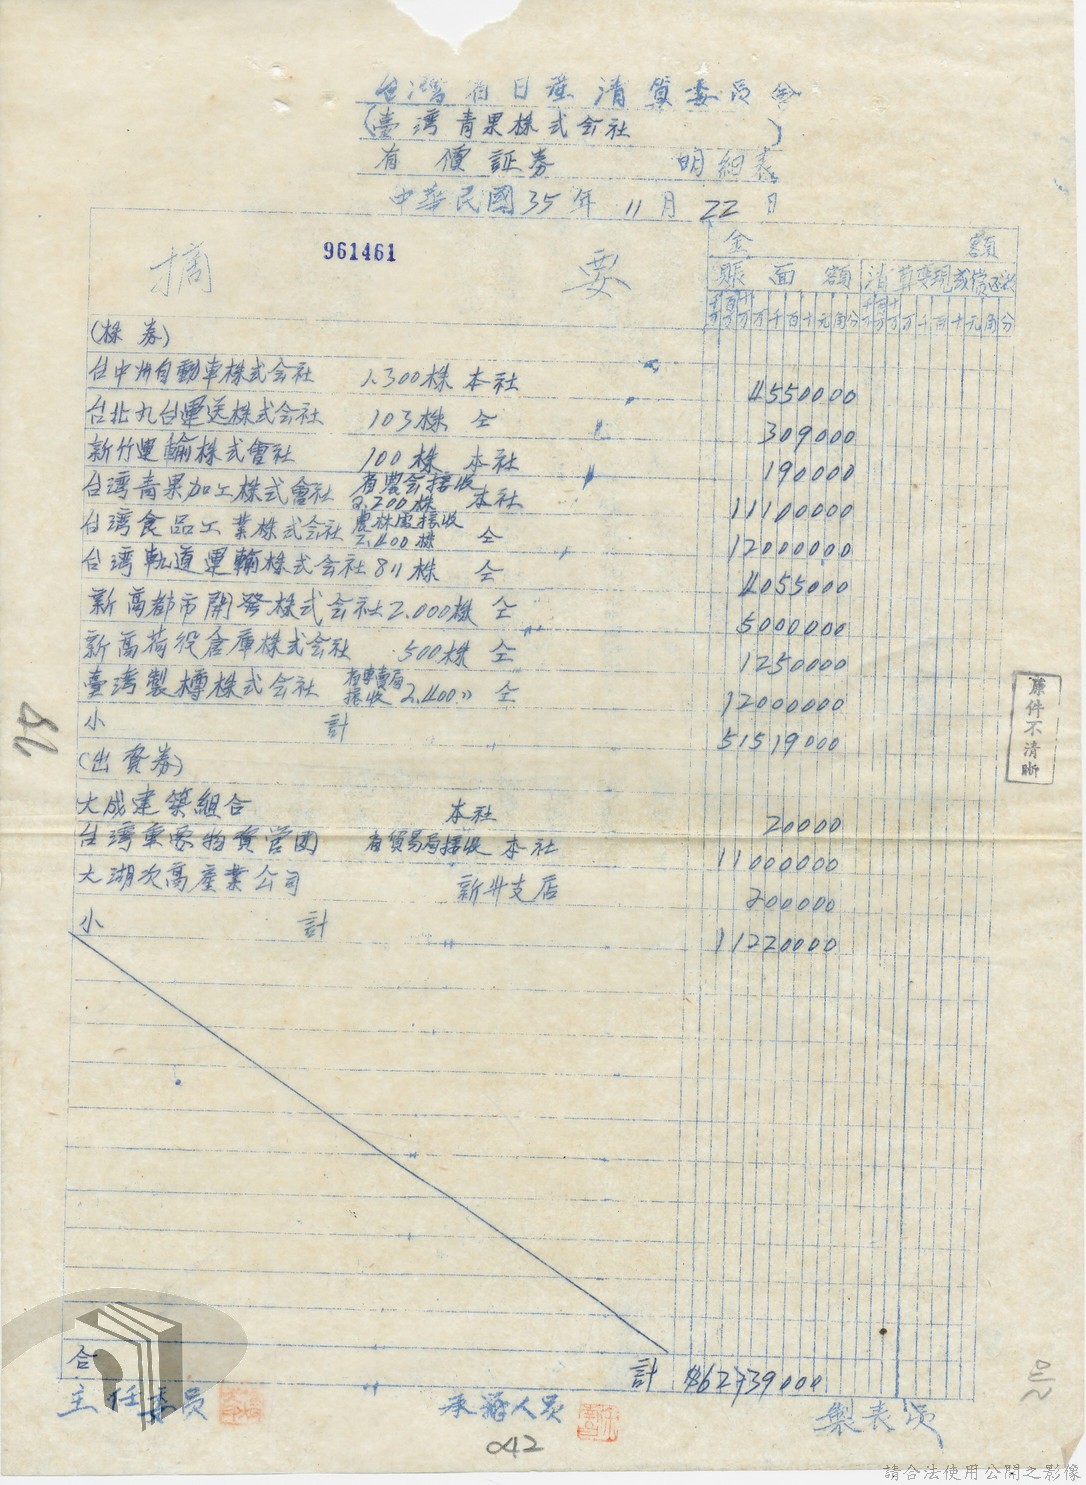 台灣省日產清算委員会
(臺灣青果株式会社)
有價証券 明細表
中華民國35年11月22日
961461
摘 要 金額
賬面額 清算變現或償还款
千万 百万 十万 万 千 百 十 元 角 分 千万 百万 十万 万 千 百 十 元 角 分
(株券)
台中州自動車株式会社 1.300株 本社 4550000
台北丸台運送株式会社 103株 仝 309000
新竹運輸株式會社 100株 本社 190000
台湾青果加工株式會社 省農会接收 2.200株 本社 11100000
台湾食品工業株式会社 農林處接收 2.400株 仝 12000000
台湾軌道運輸株式会社 811株 仝 4055000
新高都市開發株式会社 2.000株 仝 5000000
新高荷役倉庫株式会社 500株 仝 1250000
臺灣製樽株式会社 省專賣局接收 2.400〃 仝 12000000
小計 51519000
(出資券)
大成建築組合 本社 20000
台灣重要物資營團 省貿易局接收 本社 11000000
大湖次高產業公司 新竹支店 200000
小計 11220000
合計 $62739000
主任委員 承辦人員 製表員
042
原件不清晰
請合法使用公開之影像